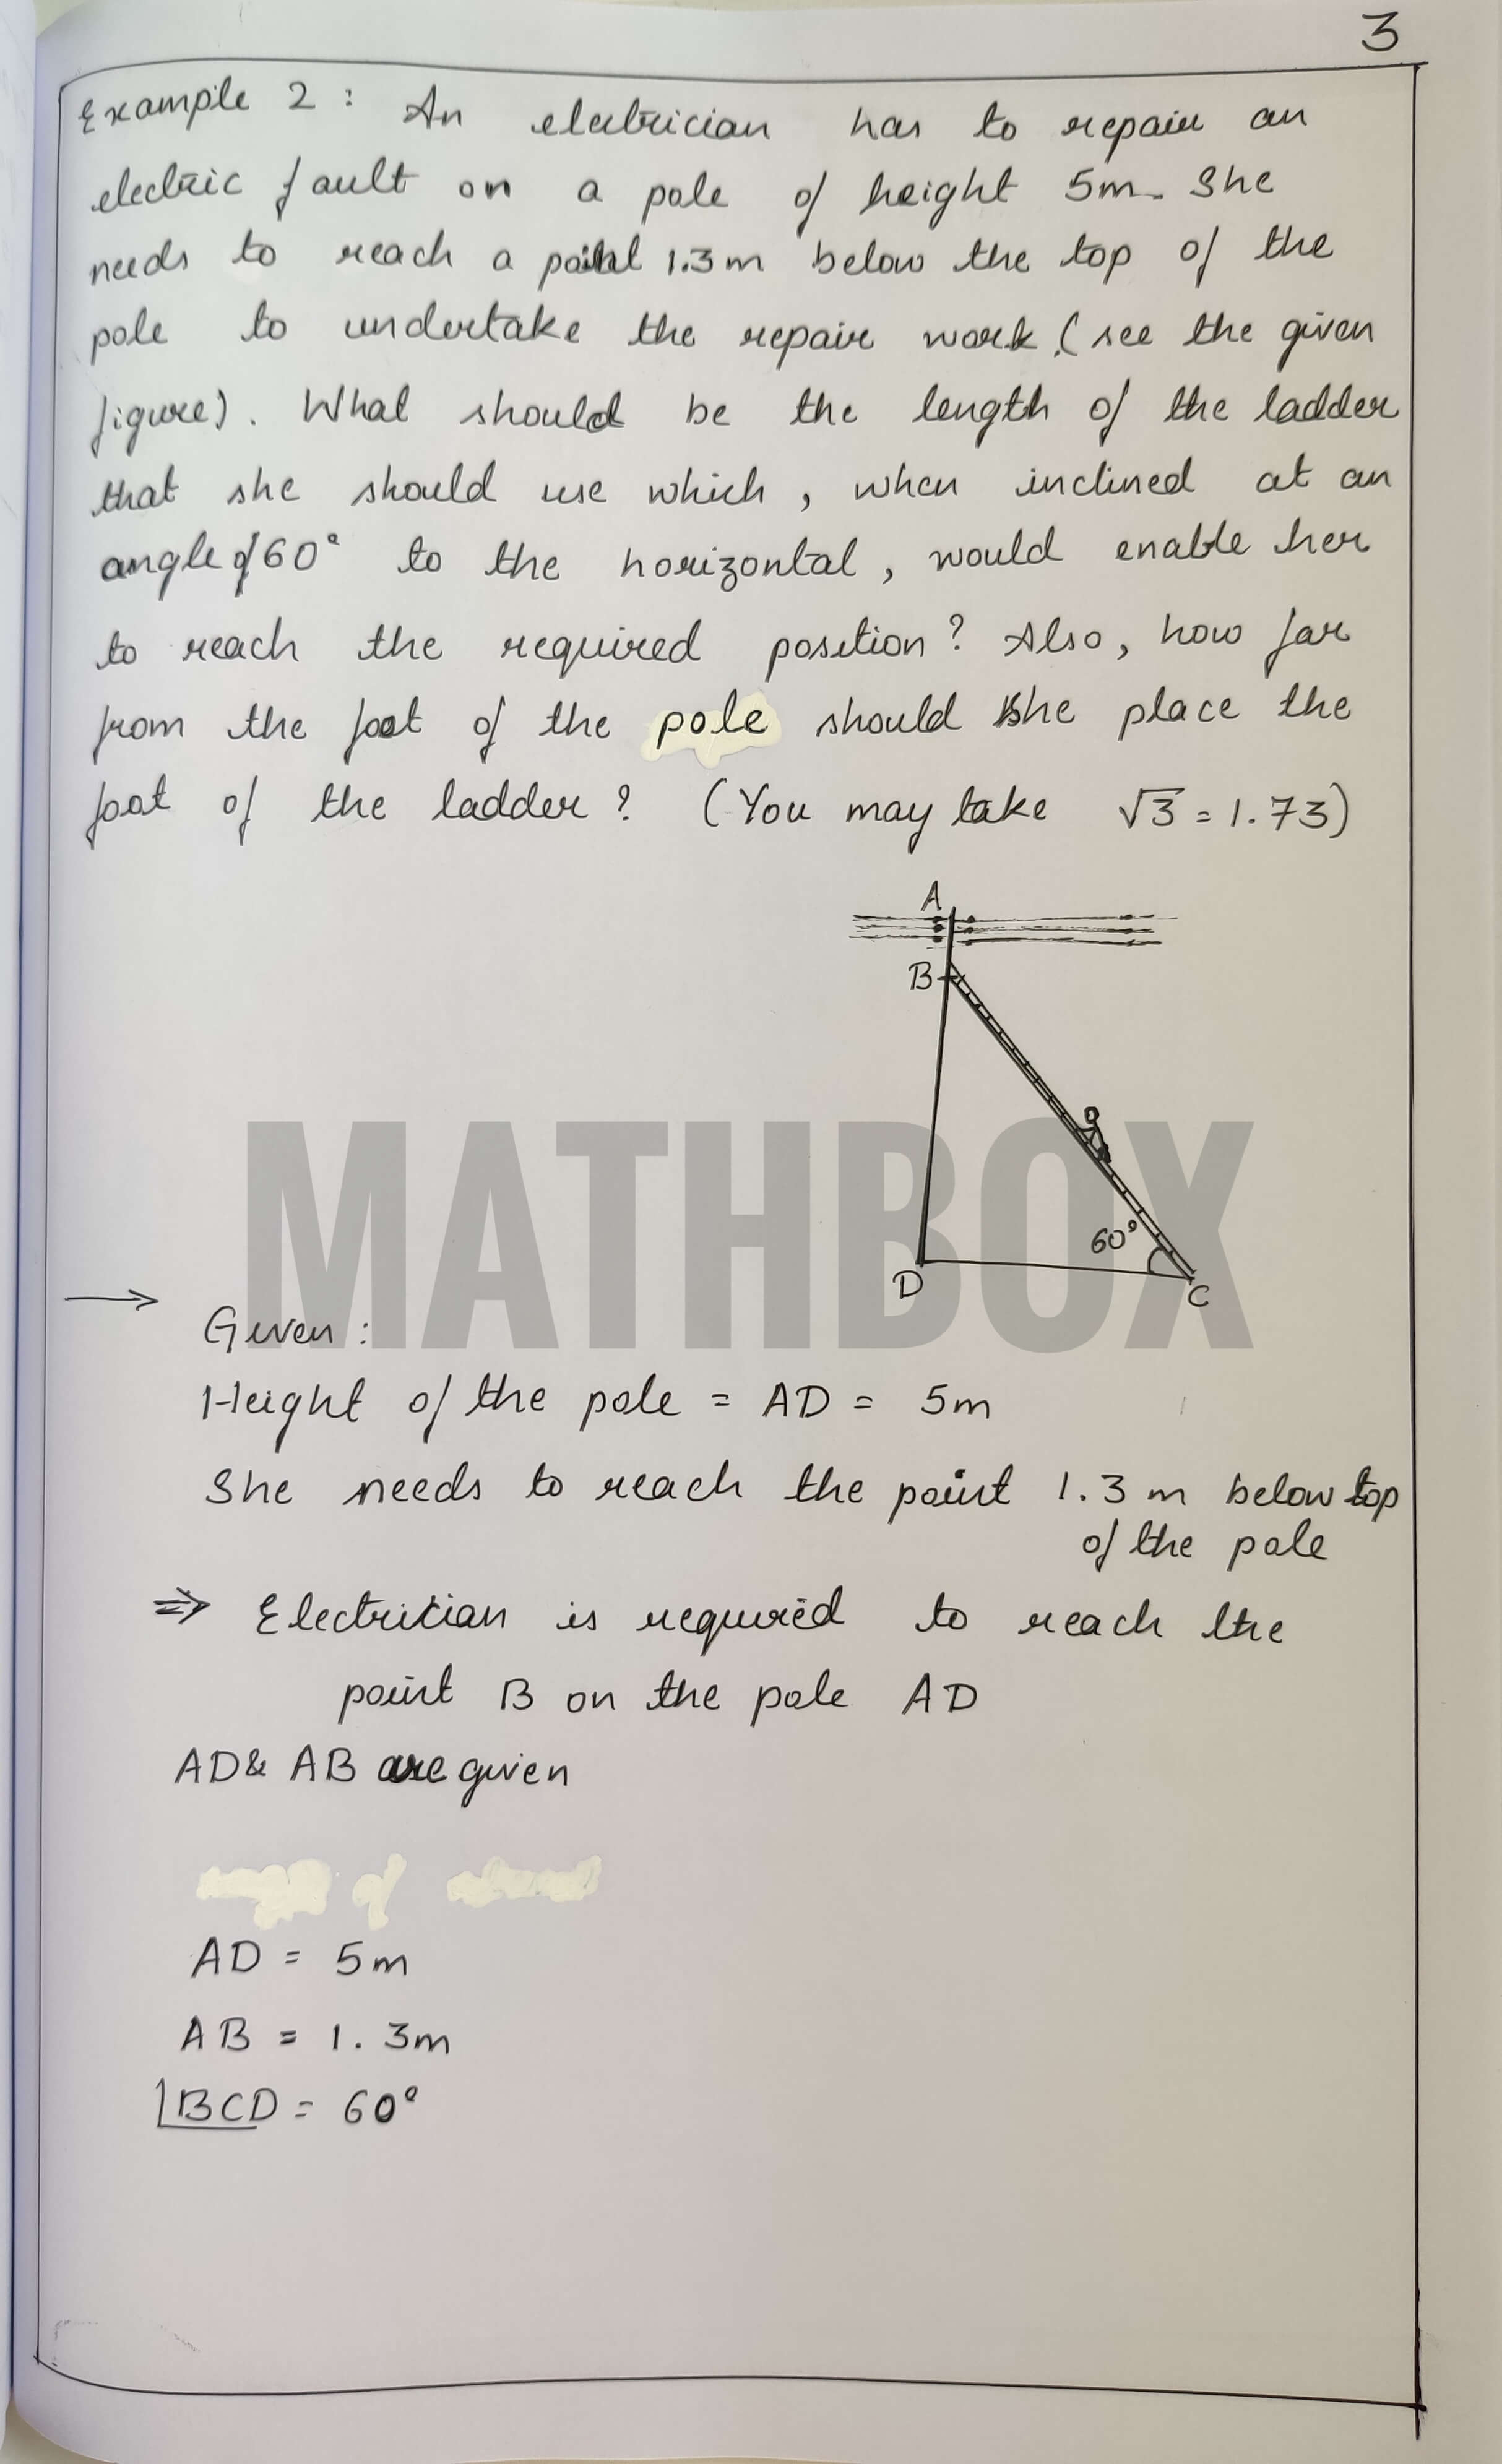 3
Example 2 : An electrician has to repair an
electric fault on a pole of height 5m. She
needs to reach a point 1.3m below the top of the
pole to undertake the repair work (see the given
figure). What should be the length of the ladder
that she should use which, when inclined at an
angle of 60° to the horizontal, would enable her
to reach the required position? Also, how far
from the foot of the pole should she place the
foot of the ladder? (You may take √3 = 1.73)
A
B
60°
D
C
MATHBOX
→ Given :
Height of the pole = AD = 5m
She needs to reach the point 1.3 m below top
of the pole
⇒ Electrician is required to reach the
point B on the pole AD
AD & AB are given
AD = 5m
AB = 1.3m
∠BCD = 60°